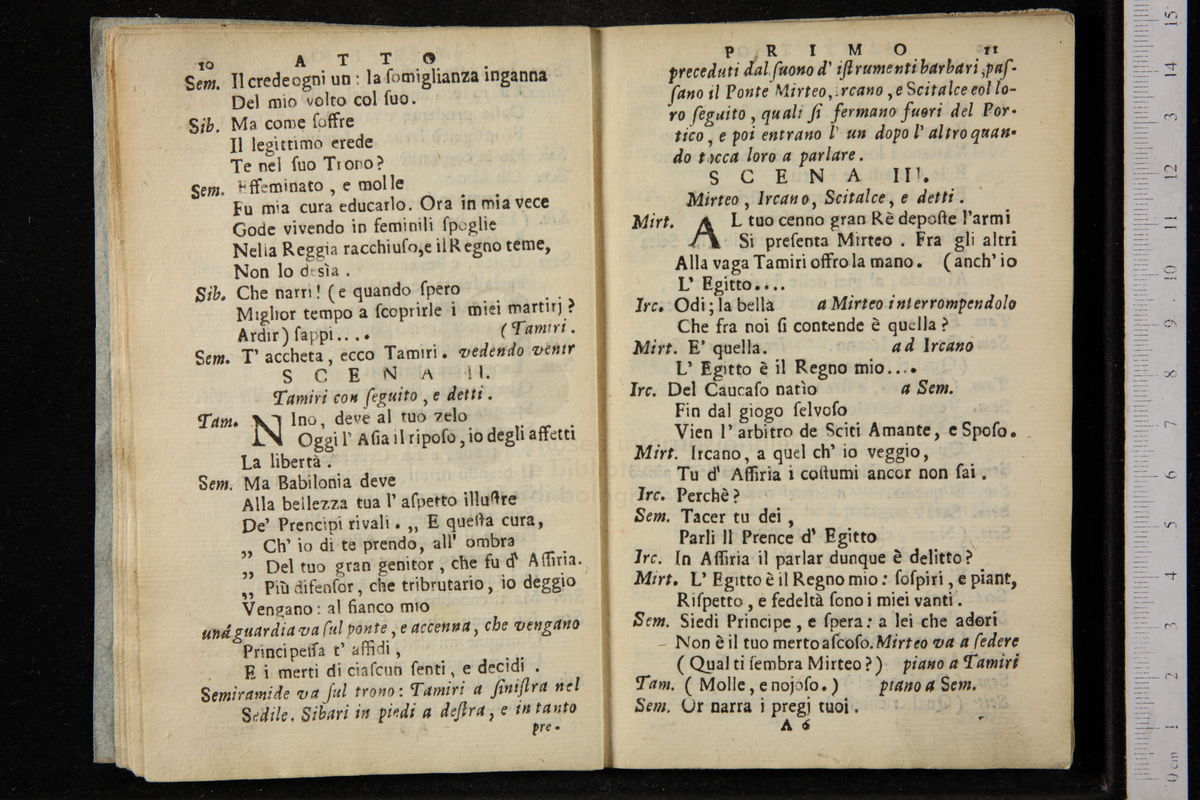 10 A T T O
Sem. Il crede ogni un : la ſomiglianza inganna
Del mio volto col ſuo.
Sib. Ma come ſoffre
Il legittimo erede
Te nel ſuo Trono?
Sem. Effeminato , e molle
Fu mia cura educarlo. Ora in mia vece
Gode vivendo in feminili ſpoglie
Nella Reggia racchiuſo,e il Regno teme,
Non lo desìa .
Sib. Che narri ! ( e quando ſpero
Miglior tempo a ſcoprirle i miei martirj ?
Ardir ) ſappi.... (Tamiri.
Sem. T' accheta, ecco Tamiri. vedendo venir
S C E N A II.
Tamiri con ſeguito , e detti .
Tam. NIno, deve al tuo zelo
Oggi l' Aſia il ripoſo, io degli affetti
La libertà .
Sem. Ma Babilonia deve
Alla bellezza tua l' aſpetto illuſtre
De' Prencipi rivali . ,, E queſta cura,
,, Ch' io di te prendo, all' ombra
,, Del tuo gran genitor , che fu d' Aſſiria.
,, Più difenſor, che tributario, io deggio
Vengano : al fianco mio
una guardia va ſul ponte, e accenna, che vengano
Principeſſa t' affidi ,
E i merti di ciaſcun ſenti, e decidi .
Semiramide va ſul trono: Tamiri a ſiniſtra nel
Sedile. Sibari in piedi a deſtra, e in tanto
pre-
P R I M O 11
preceduti dal ſuono d' iſtrumenti barbari, paſ-
ſano il Ponte Mirteo, Ircano, e Scitalce col lo-
ro ſeguito , quali ſi fermano fuori del Por-
tico, e poi entrano l' un dopo l' altro quan-
do tocca loro a parlare.
S C E N A III.
Mirteo, Ircano, Scitalce, e detti .
Mirt. AL tuo cenno gran Rè depoſte l'armi
Si preſenta Mirteo . Fra gli altri
Alla vaga Tamiri offro la mano. (anch' io
L' Egitto....
Irc. Odi ; la bella a Mirteo interrompendolo
Che fra noi ſi contende è quella ?
Mirt. E' quella. ad Ircano
L' Egitto è il Regno mio....
Irc. Del Caucaſo natìo a Sem.
Fin dal giogo ſelvoſo
Vien l' arbitro de Sciti Amante, e Spoſo.
Mirt. Ircano, a quel ch' io veggio,
Tu d' Aſſiria i coſtumi ancor non ſai .
Irc. Perchè ?
Sem. Tacer tu dei ,
Parli Il Prence d' Egitto
Irc. In Aſſiria il parlar dunque è delitto ?
Mirt. L' Egitto è il Regno mio : ſoſpiri , e piant,
Riſpetto , e fedeltà ſono i miei vanti .
Sem. Siedi Principe , e ſpera: a lei che adori
Non è il tuo merto aſcoſo. Mirteo va a ſedere
( Qual ti ſembra Mirteo ? ) piano a Tamiri
Tam. ( Molle, e nojoſo. ) piano a Sem.
Sem. Or narra i pregj tuoi .
A 6